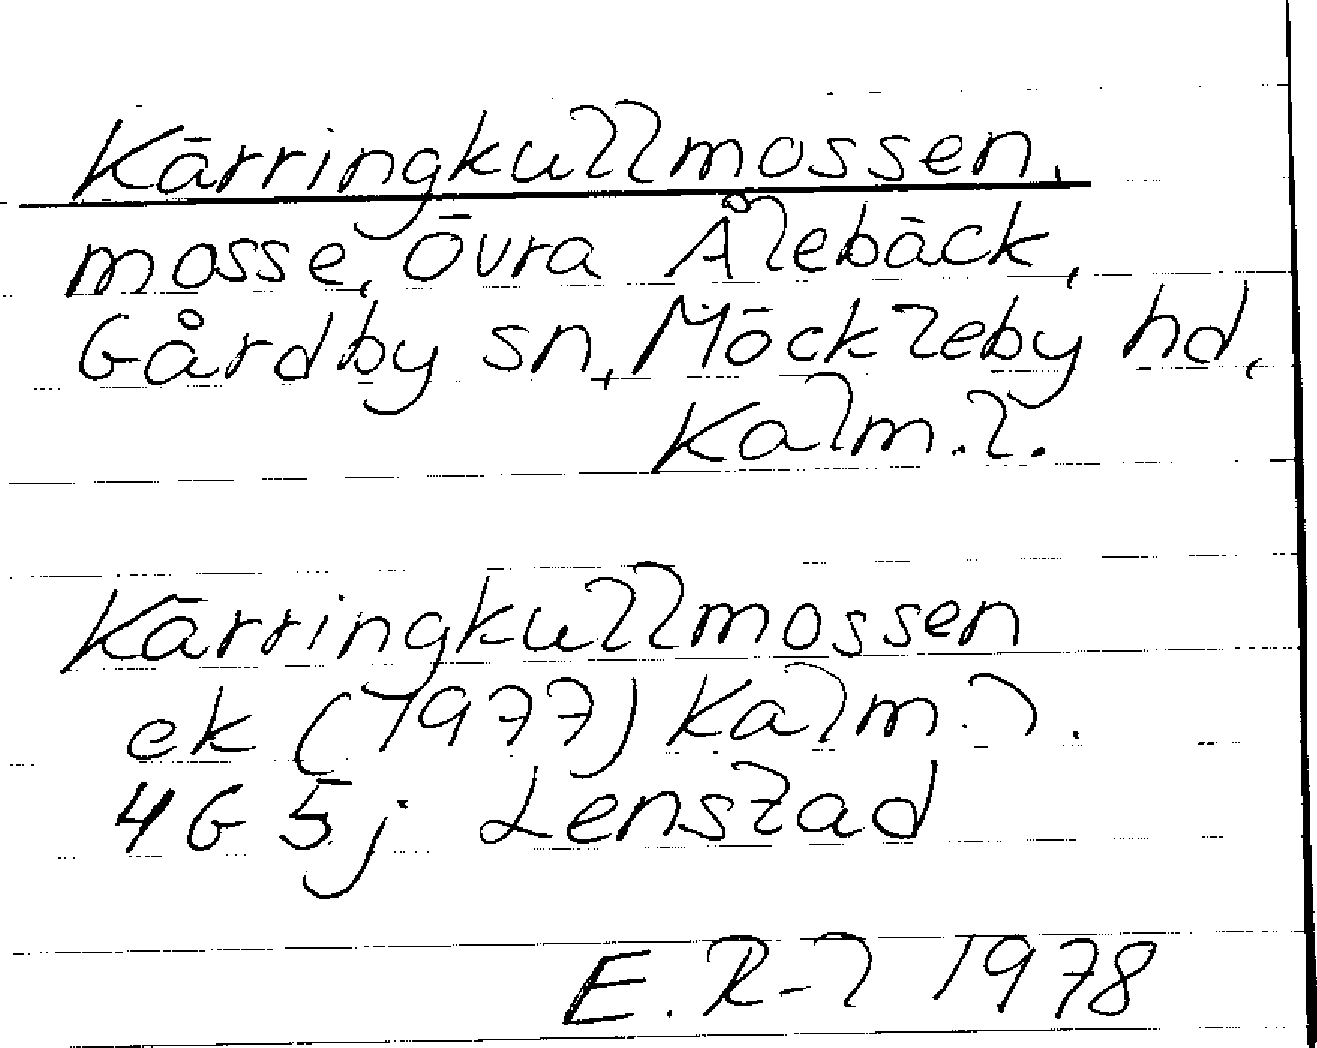 Kärringkullmossen,
mosse, Övra Ålebäck,
Gårdby sn, Möckleby hd,
Kalm.l.
Kärringkullmossen
ek (1977) Kalm.l.
4G 5j Lenstad
E.R-l 1978